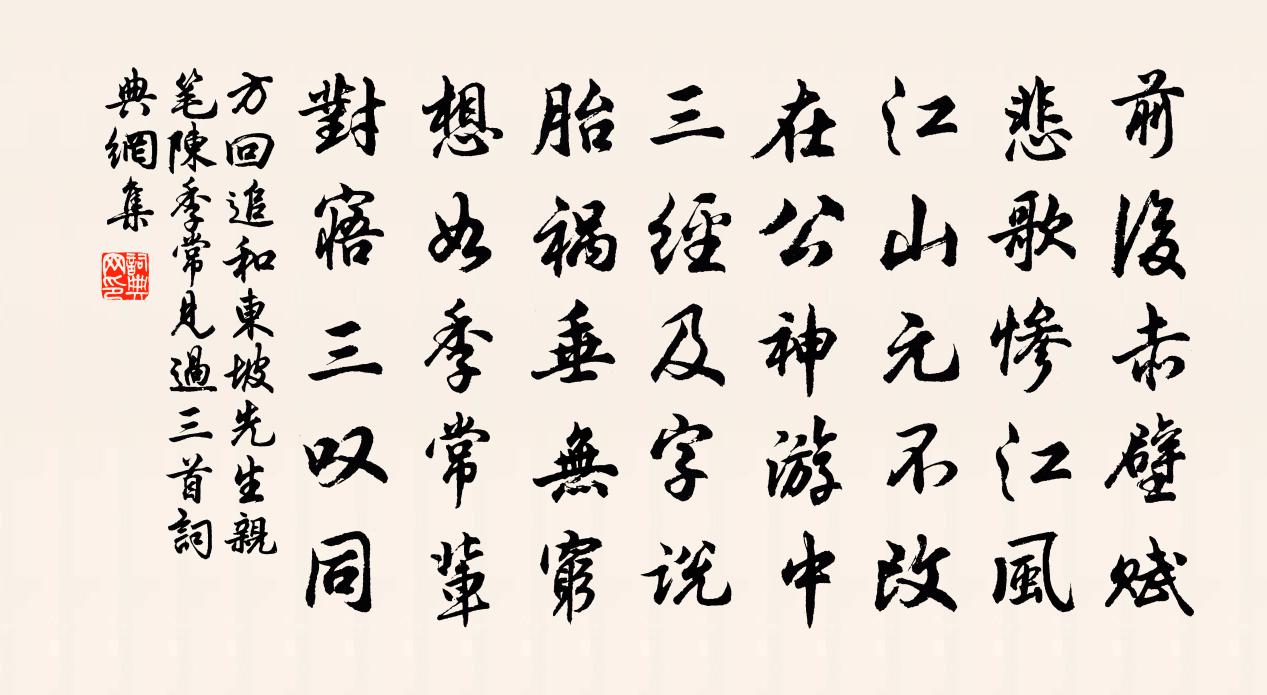 前後赤壁賦
悲歌慘江風
江山元不改
在公神游中
三經及字説
胎禍垂無窮
想如季常輩
對寤三叹同
方回追和東坡先生親
笔陳季常見過三首詞
典網集
詞典网印